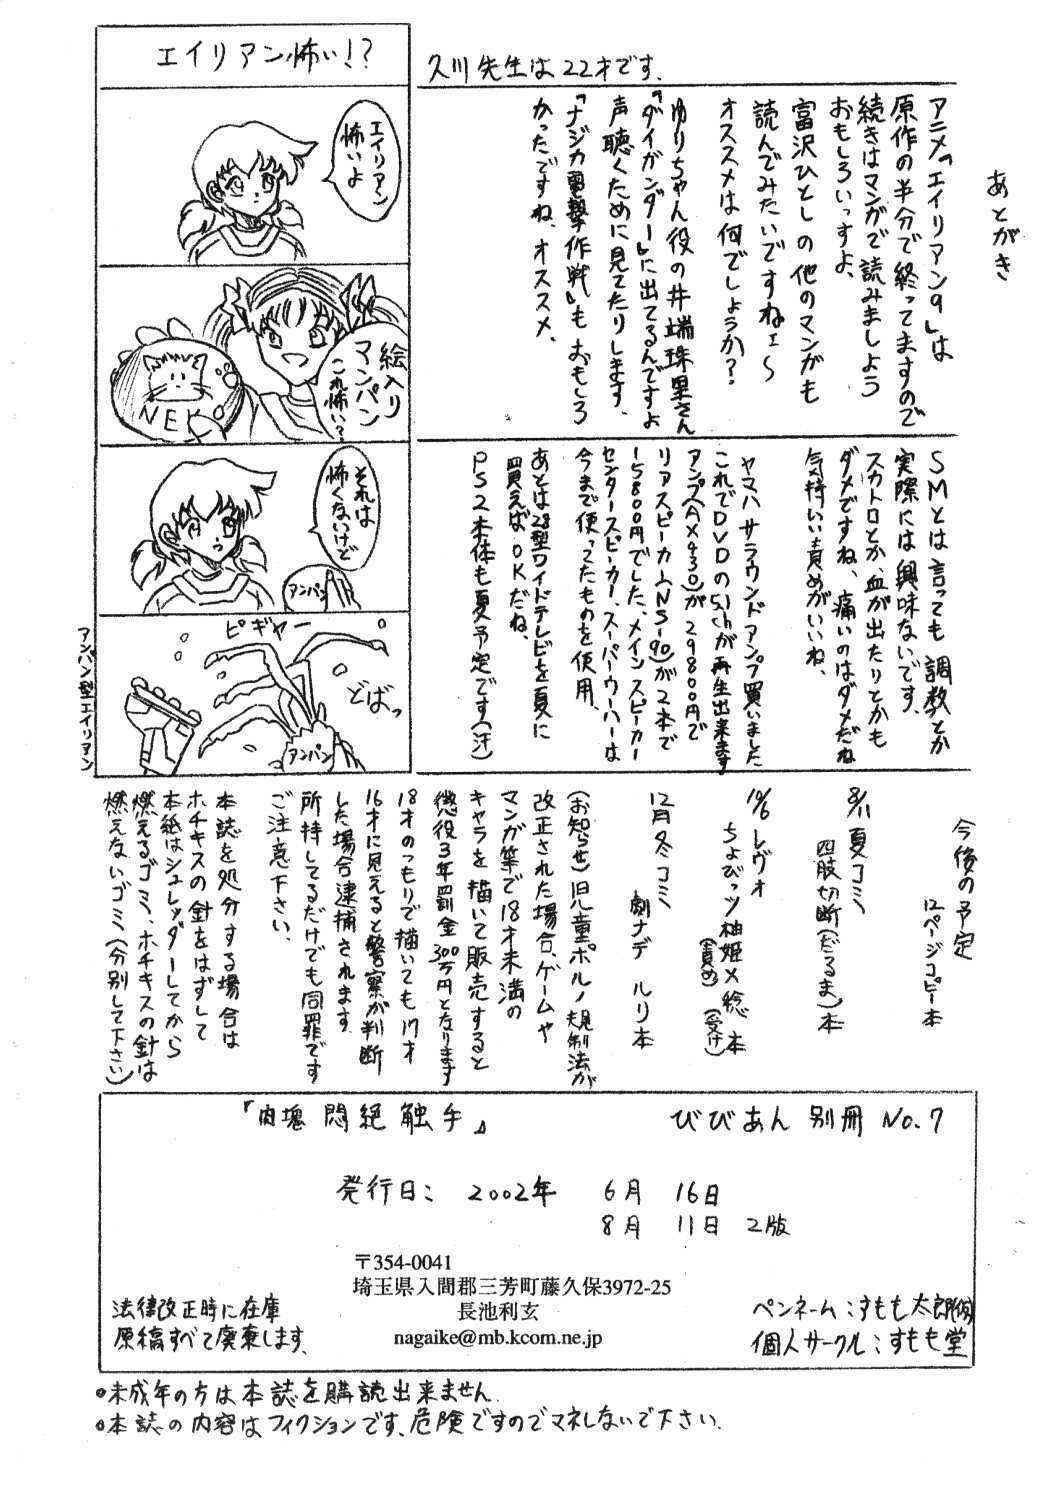 エイリアン怖い!?
エイリアン
怖いよ
絵入り
マンパン
これ怖い?
NEK
それは
怖くないけど
アンパン
ピギャー
どばっ
アンパン
アンパン型エイリアン
久川先生は22才です.
あとがき
アニメ「エイリアン9」は
原作の半分で終ってますので
続きはマンガで読みましょう
おもしろいっすよ、
富沢ひとしの他のマンガも
読んでみたいですねェ〜
オススメは何でしょうか?
ゆりちゃん役の井端珠里さん
「ダイガンダー」に出てるんですよ
声聴くために見てたりします、
「ナジカ電撃作戦」もおもしろ
かったですね、オススメ、
SMとは言っても調教とか
実際には興味ないです。
スカトロとか、血が出たりとかも
ダメですね、痛いのはダメだね
気持いい責めがいいね、
ヤマハサラウンドアンプ買いました
これでDVDの5.1chが再生出来ます
アンプ(AX430)が29800円で
リアスピーカー(NS-90)が2本で
15800円でした、メインスピーカー
センタースピーカー、スーパーウーハーは
今まで使ってたものを使用、
あとは28型ワイドテレビを夏に
買えばOKだね、
PS2本体も夏予定です(汗)
今後の予定
12ページコピー本
8/11夏コミ
四肢切断(だるま)本
10/6レヴォ
ちょびッツ柚姫×稔本
(責め)(受け)
12月冬コミ
劇ナデ ルリ本
(お知らせ)児童ポルノ規制法が
改正された場合、ゲームや
マンガ等で18才未満の
キャラを描いて販売すると
懲役3年罰金300万円となります
18才のつもりで描いても17才
16才に見えると警察が判断
した場合逮捕されます
所持してるだけでも同罪です
ご注意下さい、
本誌を処分する場合は
ホチキスの針をはずして
本紙はシュレッダーしてから
燃えるゴミ、ホチキスの針は
燃えないゴミ(分別して下さい)
『肉塊悶絶触手』 びびあん別冊No.7
発行日: 2002年 6月 16日
8月 11日 2版
〒354-0041
埼玉県入間郡三芳町藤久保3972-25
長池利玄
nagaike@mb.kcom.ne.jp
法律改正時に在庫
原稿すべて廃棄します、
ペンネーム:すもも太郎(仮)
個人サークル:すもも堂
○未成年の方は本誌を購読出来ません.
○本誌の内容はフィクションです、危険ですのでマネしないで下さい.